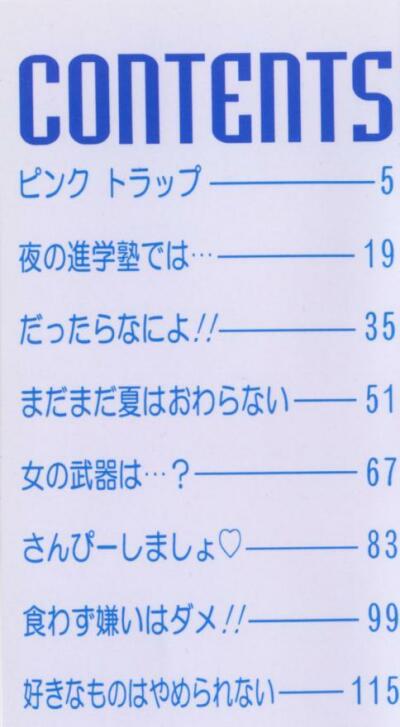 CONTENTS
ピンク トラップ — 5
夜の進学塾では… — 19
だったらなによ!! — 35
まだまだ夏はおわらない — 51
女の武器は…? — 67
さんぴーしましょ♡ — 83
食わず嫌いはダメ!! — 99
好きなものはやめられない — 115